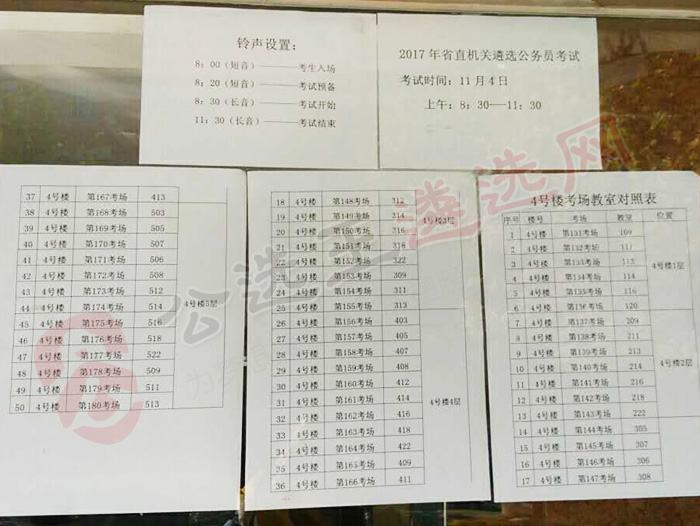 铃声设置：
8：00（短音）———考生入场
8：20（短音）———考试预备
8：30（长音）———考试开始
11：30（长音）———考试结束
2017年省直机关遴选公务员考试
考试时间：11月4日
上午：8：30—11：30
37 4号楼 第167考场 413
38 4号楼 第168考场 503
39 4号楼 第169考场 505
40 4号楼 第170考场 507
41 4号楼 第171考场 506
42 4号楼 第172考场 508
43 4号楼 第173考场 512
44 4号楼 第174考场 514 4号楼5层
45 4号楼 第175考场 516
46 4号楼 第176考场 518
47 4号楼 第177考场 522
48 4号楼 第178考场 509
49 4号楼 第179考场 511
50 4号楼 第180考场 513
18 4号楼 第148考场 312
19 4号楼 第149考场 314 4号楼3层
20 4号楼 第150考场 316
21 4号楼 第151考场 318
22 4号楼 第152考场 322
23 4号楼 第153考场 309
24 4号楼 第154考场 311
25 4号楼 第155考场 313
26 4号楼 第156考场 403
27 4号楼 第157考场 405
28 4号楼 第158考场 407
29 4号楼 第159考场 408
30 4号楼 第160考场 412
31 4号楼 第161考场 414 4号楼4层
32 4号楼 第162考场 416
33 4号楼 第163考场 418
34 4号楼 第164考场 422
35 4号楼 第165考场 409
36 4号楼 第166考场 411
4号楼考场教室对照表
序号 楼号 考场 教室 位置
1 4号楼 第131考场 109
2 4号楼 第132考场
3 4号楼 第133考场 112 4号楼1层
4 4号楼 第134考场 114
5 4号楼 第135考场 116
6 4号楼 第136考场 120
7 4号楼 第137考场 209
8 4号楼 第138考场 211
9 4号楼 第139考场 213 4号楼2层
10 4号楼 第140考场 214
11 4号楼 第141考场 216
12 4号楼 第142考场 218
13 4号楼 第143考场 222
14 4号楼 第144考场 305
15 4号楼 第145考场 307
16 4号楼 第146考场 306
17 4号楼 第147考场 308
公选王遴选网